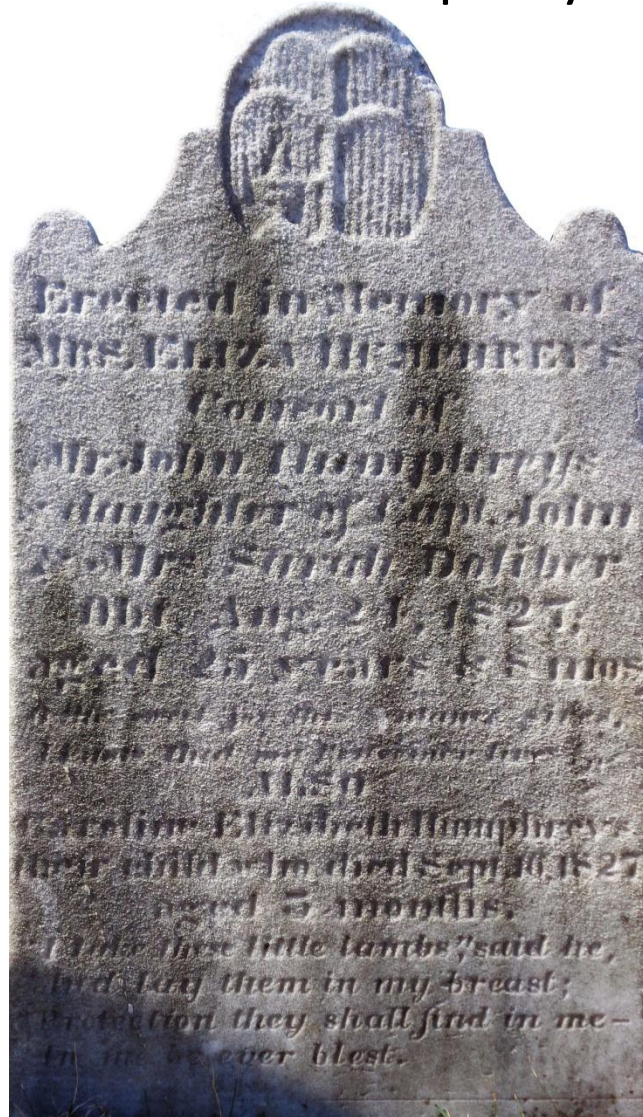 Erected in Memory of
MRS. ELIZA HUMPHREYS
Consort of
Mr. John Humphreys
& daughter of Capt. John
& Mrs. Sarah Doliber
Obt. Aug. 21, 1827.
aged 25 years & 8 mos
that my Redeemer
ALSO
Caroline Elizabeth Humphreys
their child who died Sept. 16, 1827
aged 5 months.
"I take these little lambs," said he,
And lay them in my breast;
Protection they shall find in me–
In me be ever blest.